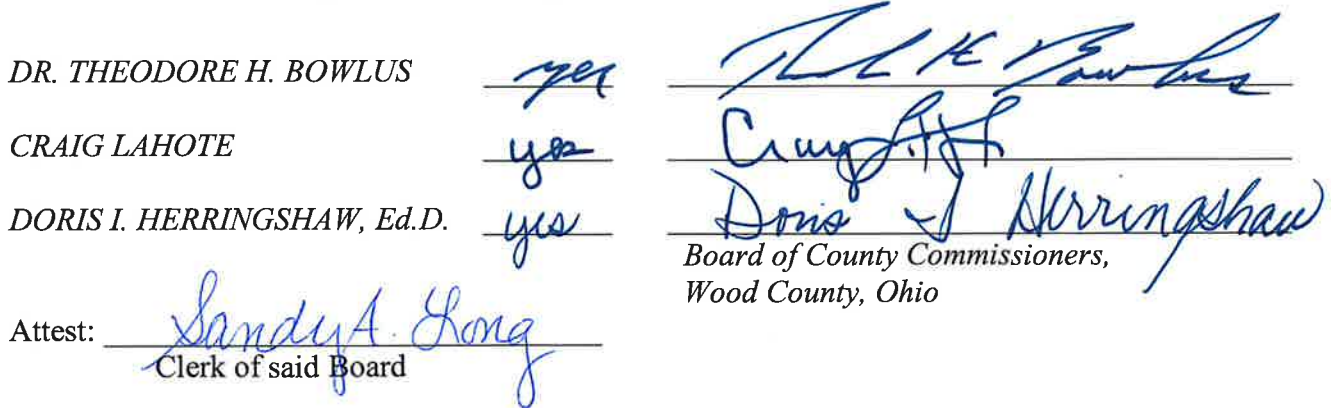 DR. THEODORE H. BOWLUS yes Theodore H Bowlus
CRAIG LAHOTE yes Craig LaHote
DORIS I. HERRINGSHAW, Ed.D. yes Doris I Herringshaw
Board of County Commissioners,
Wood County, Ohio
Attest: Sandy A. Long
Clerk of said Board